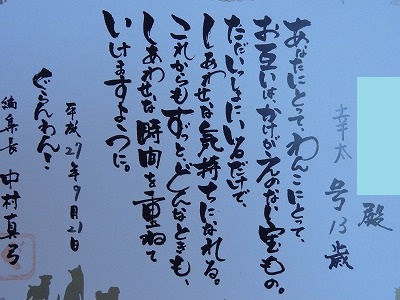 殿
幸太号13歳
あなたにとって、わんこにとって、
お互いは、かけがえのない宝もの。
ただいっしょにいるだけで、
しあわせな気持ちになれる。
これからもずっと、どんなときも、
しあわせな時間を重ねて
いけますように。
平成27年9月21日
ぐらんわん!
編集長 中村真弓